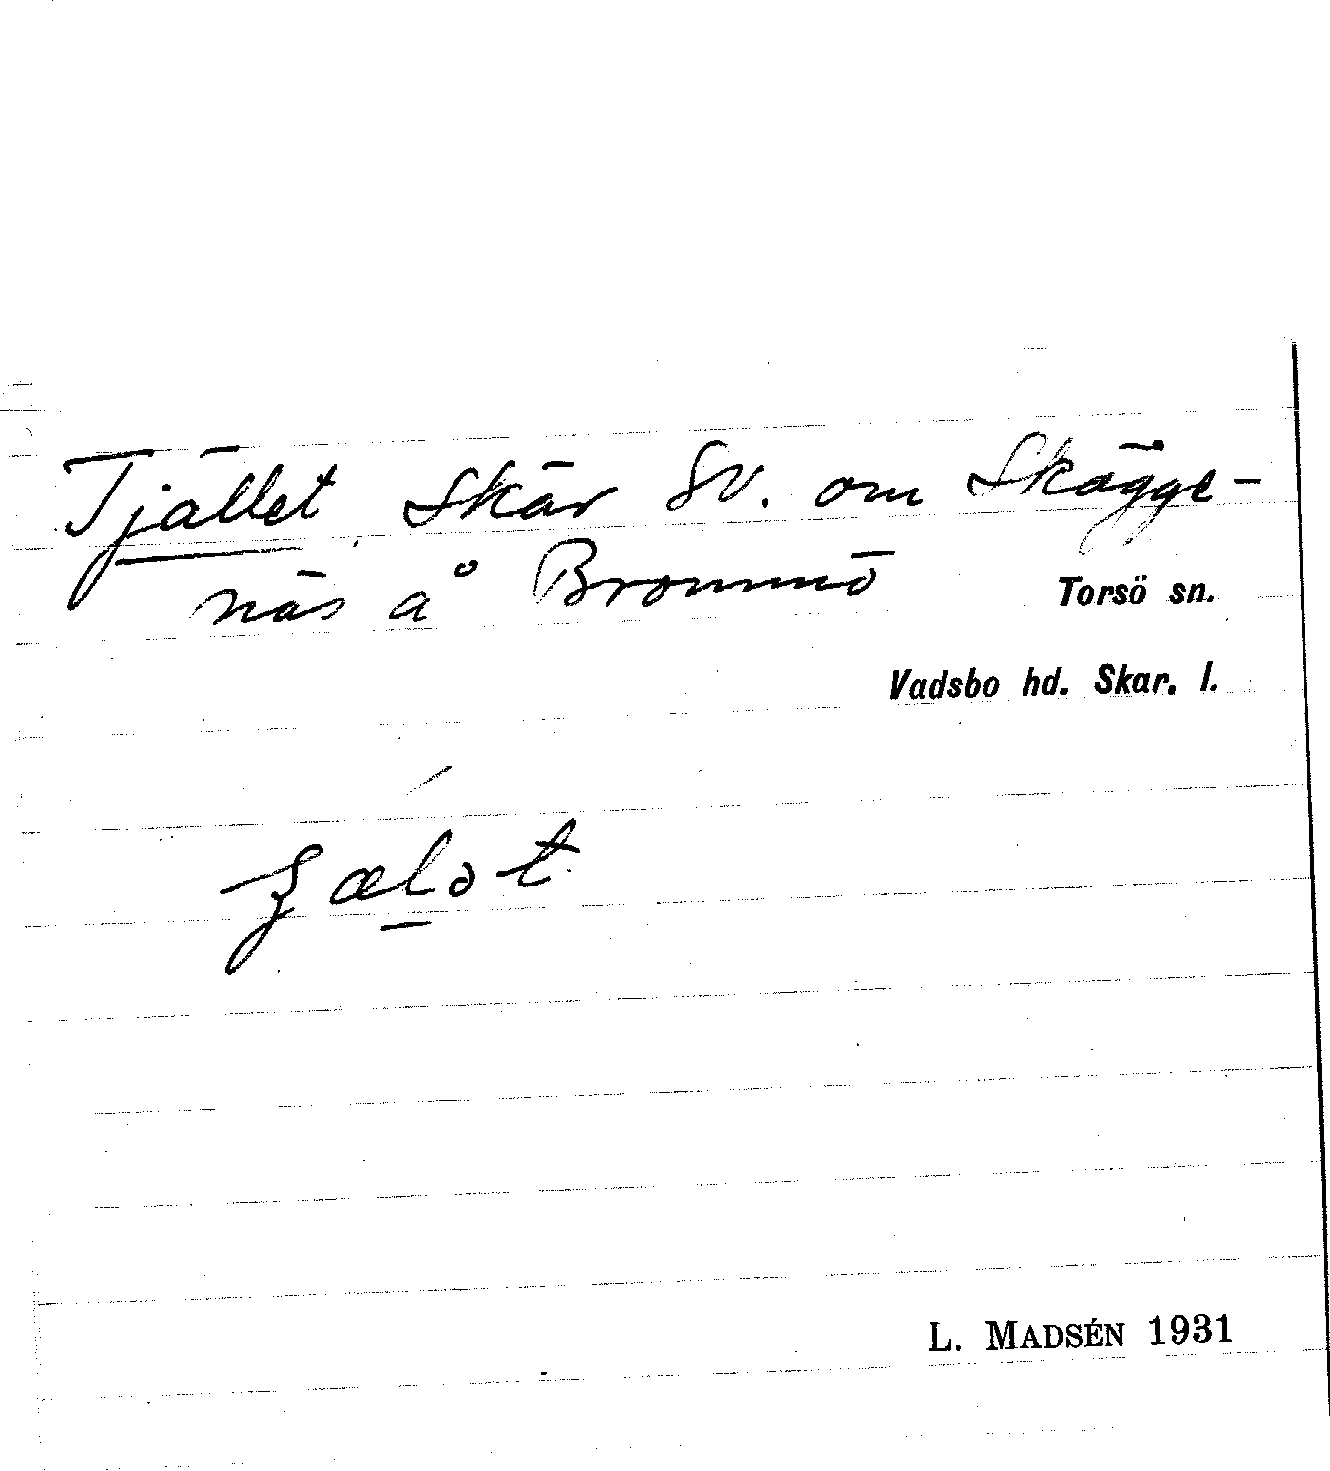 Tjället, Skär SV. om Skägge-
näs å Brommö
Torsö sn.
Vadsbo hd. Skar. l.
L. MADSÉN 1931